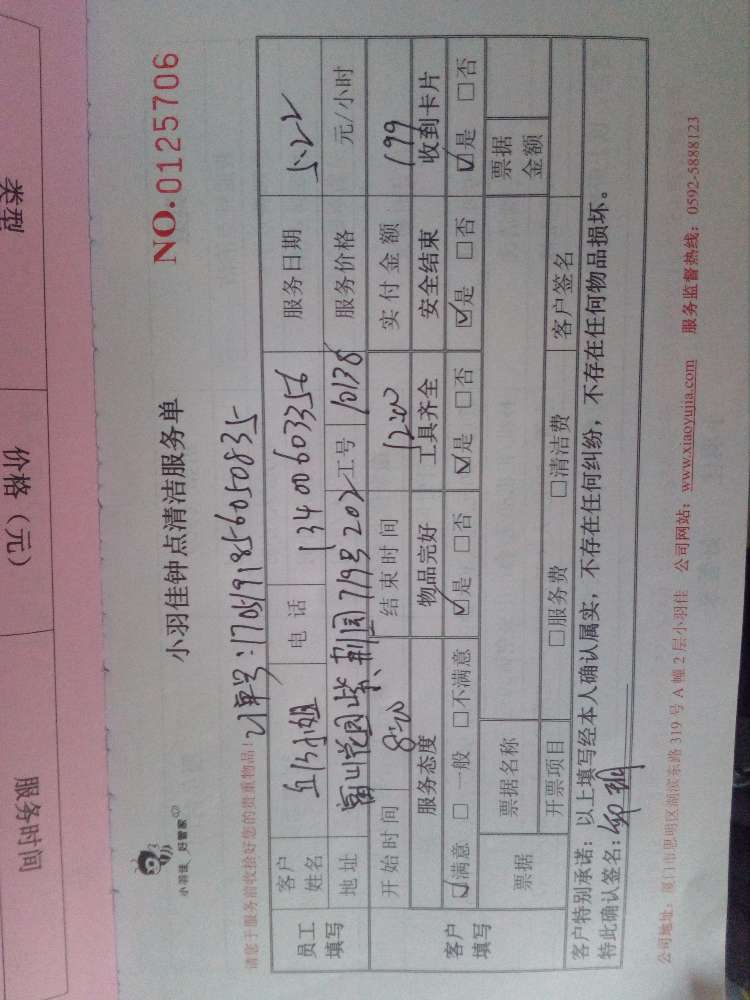 类型
价格（元）
服务时间
小羽佳 好管家
小羽佳钟点清洁服务单
NO.0125706
请您于服务前收拾好您的贵重物品！
订单号：1705191856050835
员工填写
客户姓名 丘小姐 电话 13400603356 服务日期 5.22
地址 富山花园紫荆园719号202 工号 10138 服务价格 元/小时
客户填写
开始时间 8:00 结束时间 1200 实付金额 199
服务态度 物品完好 工具齐全 安全结束 收到卡片
☑满意 □一般 □不满意 ☑是 □否 ☑是 □否 ☑是 □否 ☑是 □否
票据 票据名称 票据金额
开票项目 □服务费 □清洁费 客户签名
客户特别承诺：以上填写经本人确认属实，不存在任何纠纷，不存在任何物品损坏。
特此确认签名：
公司地址：厦门市思明区湖滨东路 319 号 A 幢 2 层小羽佳 公司网站：www.xiaoyujia.com 服务监督热线：0592-5888123